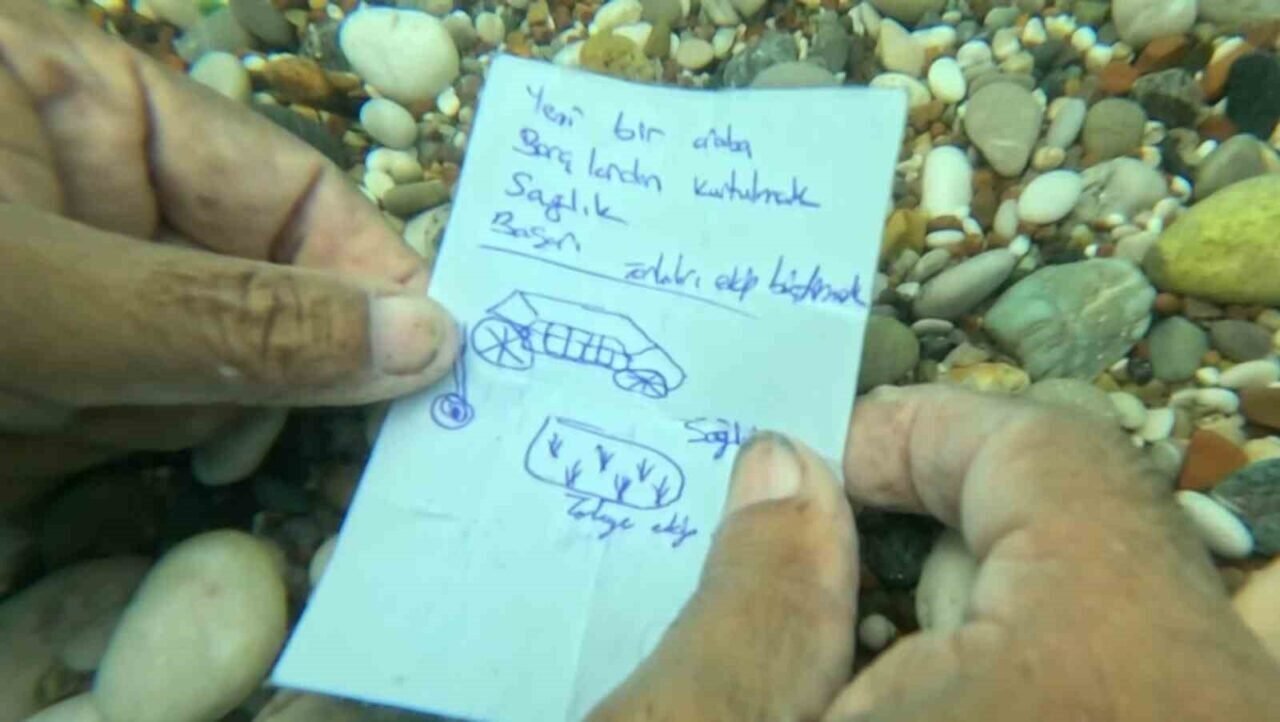 Yeni bir araba
Borçlardan kurtulmak
Sağlık
Başarı
Tarlaları ekip biçtirmek
Sağlı
ekip